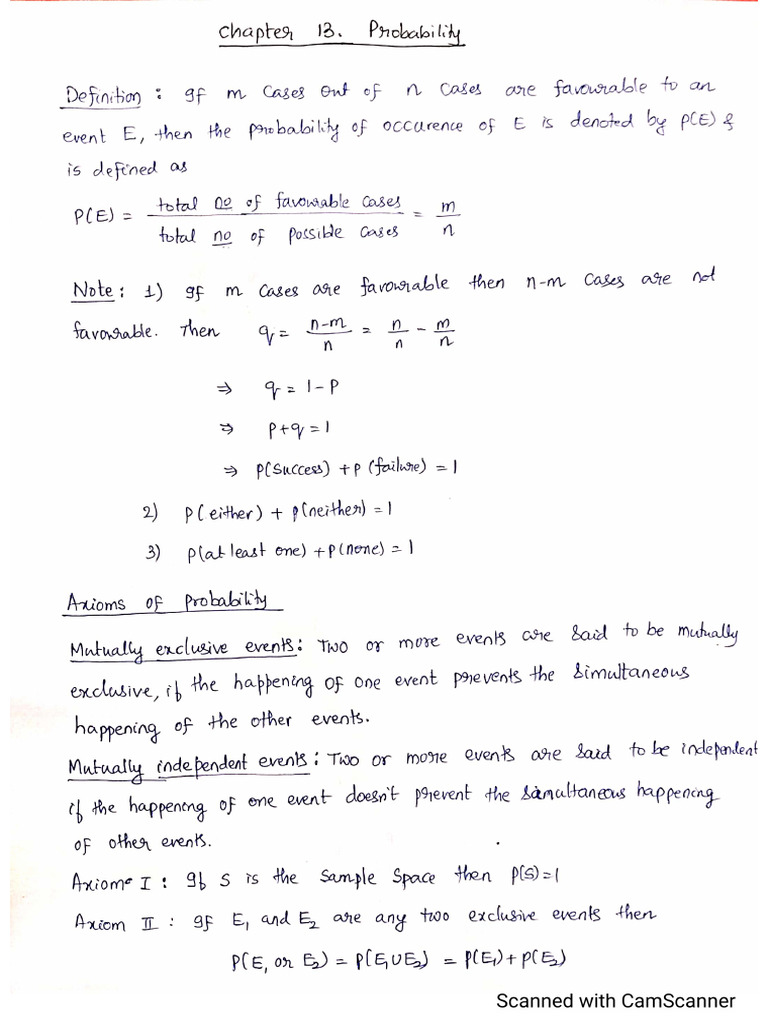 Chapter 13. Probability
Definition : If m cases out of n cases are favourable to an
event E, then the probability of occurence of E is denoted by P(E) &
is defined as
P(E) = total no of favourable cases / total no of possible cases = m/n
Note : 1) If m cases are favourable then n-m cases are not
favourable. Then q = n-m/n = n/n - m/n
⇒ q = 1-P
⇒ P+q = 1
⇒ P(Success) + P(failure) = 1
2) P(either) + P(neither) = 1
3) P(at least one) + P(none) = 1
Axioms of Probability
Mutually exclusive events: Two or more events are said to be mutually
exclusive, if the happening of one event prevents the simultaneous
happening of the other events.
Mutually independent events: Two or more events are said to be independent
if the happening of one event doesn't prevent the simultaneous happening
of other events.
Axiome I : If S is the Sample Space then P(S)=1
Axiom II : If E₁ and E₂ are any two exclusive events then
P(E₁ or E₂) = P(E₁∪E₂) = P(E₁)+P(E₂)
Scanned with CamScanner